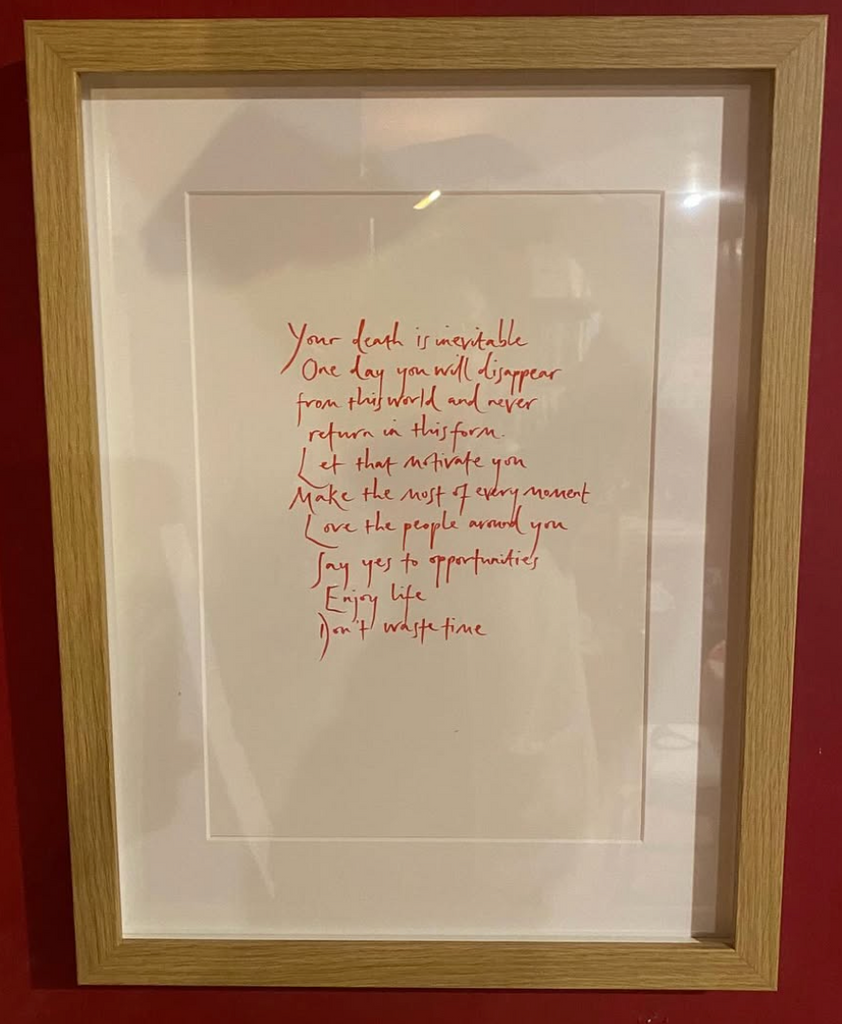 Your death is inevitable
One day you will disappear
from this world and never
return in this form.
Let that motivate you
Make the most of every moment
Love the people around you
Say yes to opportunities
Enjoy life
Don't waste time